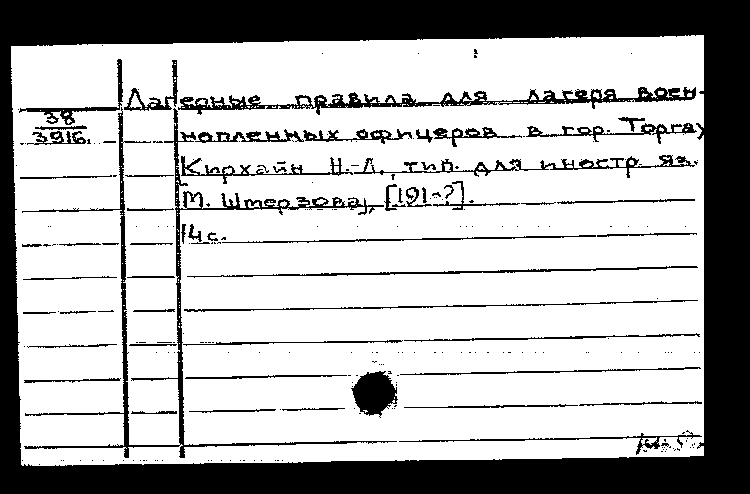 Лагерные правила для лагеря воен-
38
3916.
нопленных офицеров в гор. Торгау
Кирхайн Н.-Л., тип. для иностр. яз.
М. Штерзова, [191-?].
14 с.